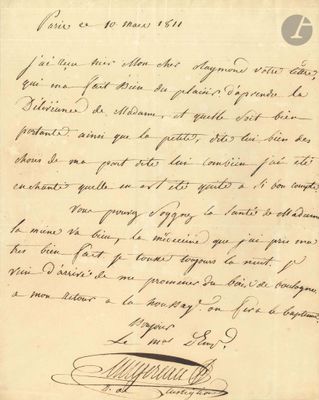 Paris ce 10 mars 1811
j'ai reçu mes Mon cher Raymond votre lettre,
qui ma fait Bien du plaisir d'aprendre la
Délivrence de Madame, et quelle soit bien
portante ainsi que la petite, dite lui bien des
choses de ma part dite lui combien j'ai été
enchanté quelle en est été quitte a si bon compte
Vous pouvez soygnez la santé de Madame
la miene va bien, la médecine que j'ai pris ma
tres bien fait je tousse toujours la nuit. je
vien d'arrivé de me promener du bois de boulogne
a mon retour a la houssay. on fera le baptême.
Bonjour
Le mal Duc
Augereau
D. de Castiglione